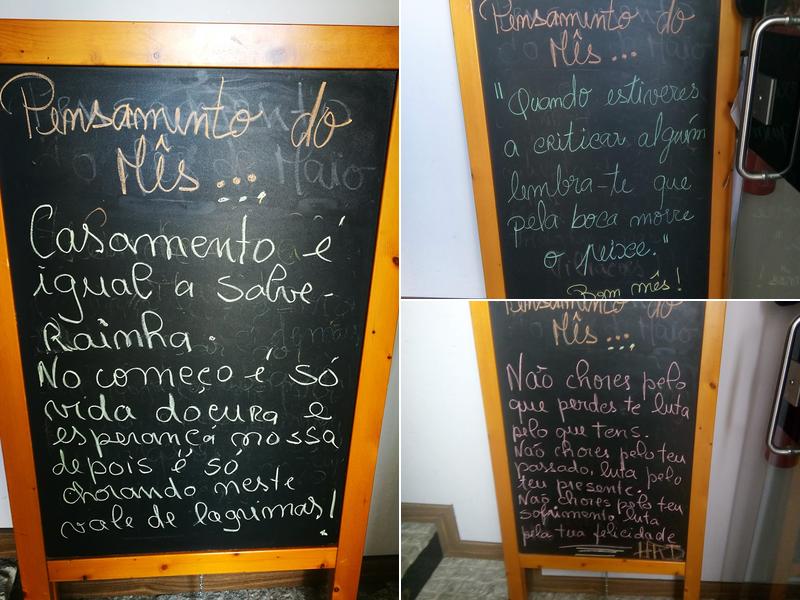 Pensamento do
Mês...
Casamento é
igual a salve-
Rainha.
No começo é só
vida doçura e
esperança nossa
depois é só
chorando neste
vale de lagrimas!
Pensamento do
Mês...
"Quando estiveres
a criticar alguém
lembra-te que
pela boca morre
o peixe."
Bom mês!
Pensamento do
Mês...
Não chores pelo
que perdes te luta
pelo que tens.
Não chores pelo teu
passado, luta pelo
teu presente.
Não chores pelo teu
sofrimento, luta
pela tua felicidade